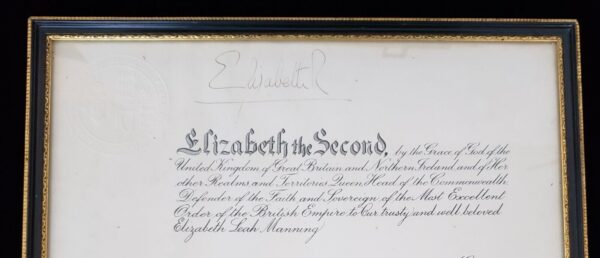 Elizabeth R
Elizabeth the Second, by the Grace of God of the
United Kingdom of Great Britain and Northern Ireland and of Her
other Realms and Territories Queen, Head of the Commonwealth,
Defender of the Faith and Sovereign of the Most Excellent
Order of the British Empire to Our trusty and well beloved
Elizabeth Leah Manning